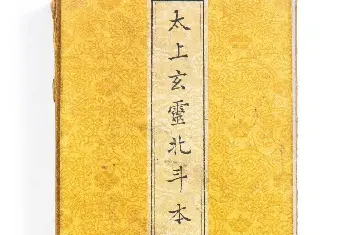 太上玄靈北斗本